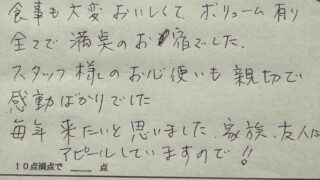 食事も大変おいしくて、ボリューム有り
全てで満点のお宿でした。
スタッフ様のお心使いも親切で
感動ばかりでした
毎年来たいと思いました、家族、友人に
アピールしていますので!!
10点満点で　　点